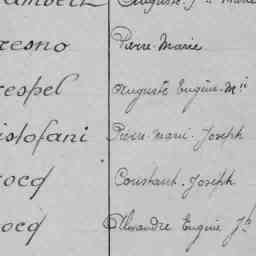 Auguste J.h Marie
resno Pierre Marie
respel Auguste Eugène M.ie
istofani Pierre marie Joseph
rocq Constant Joseph
rocq Alexandre Eugène J.h